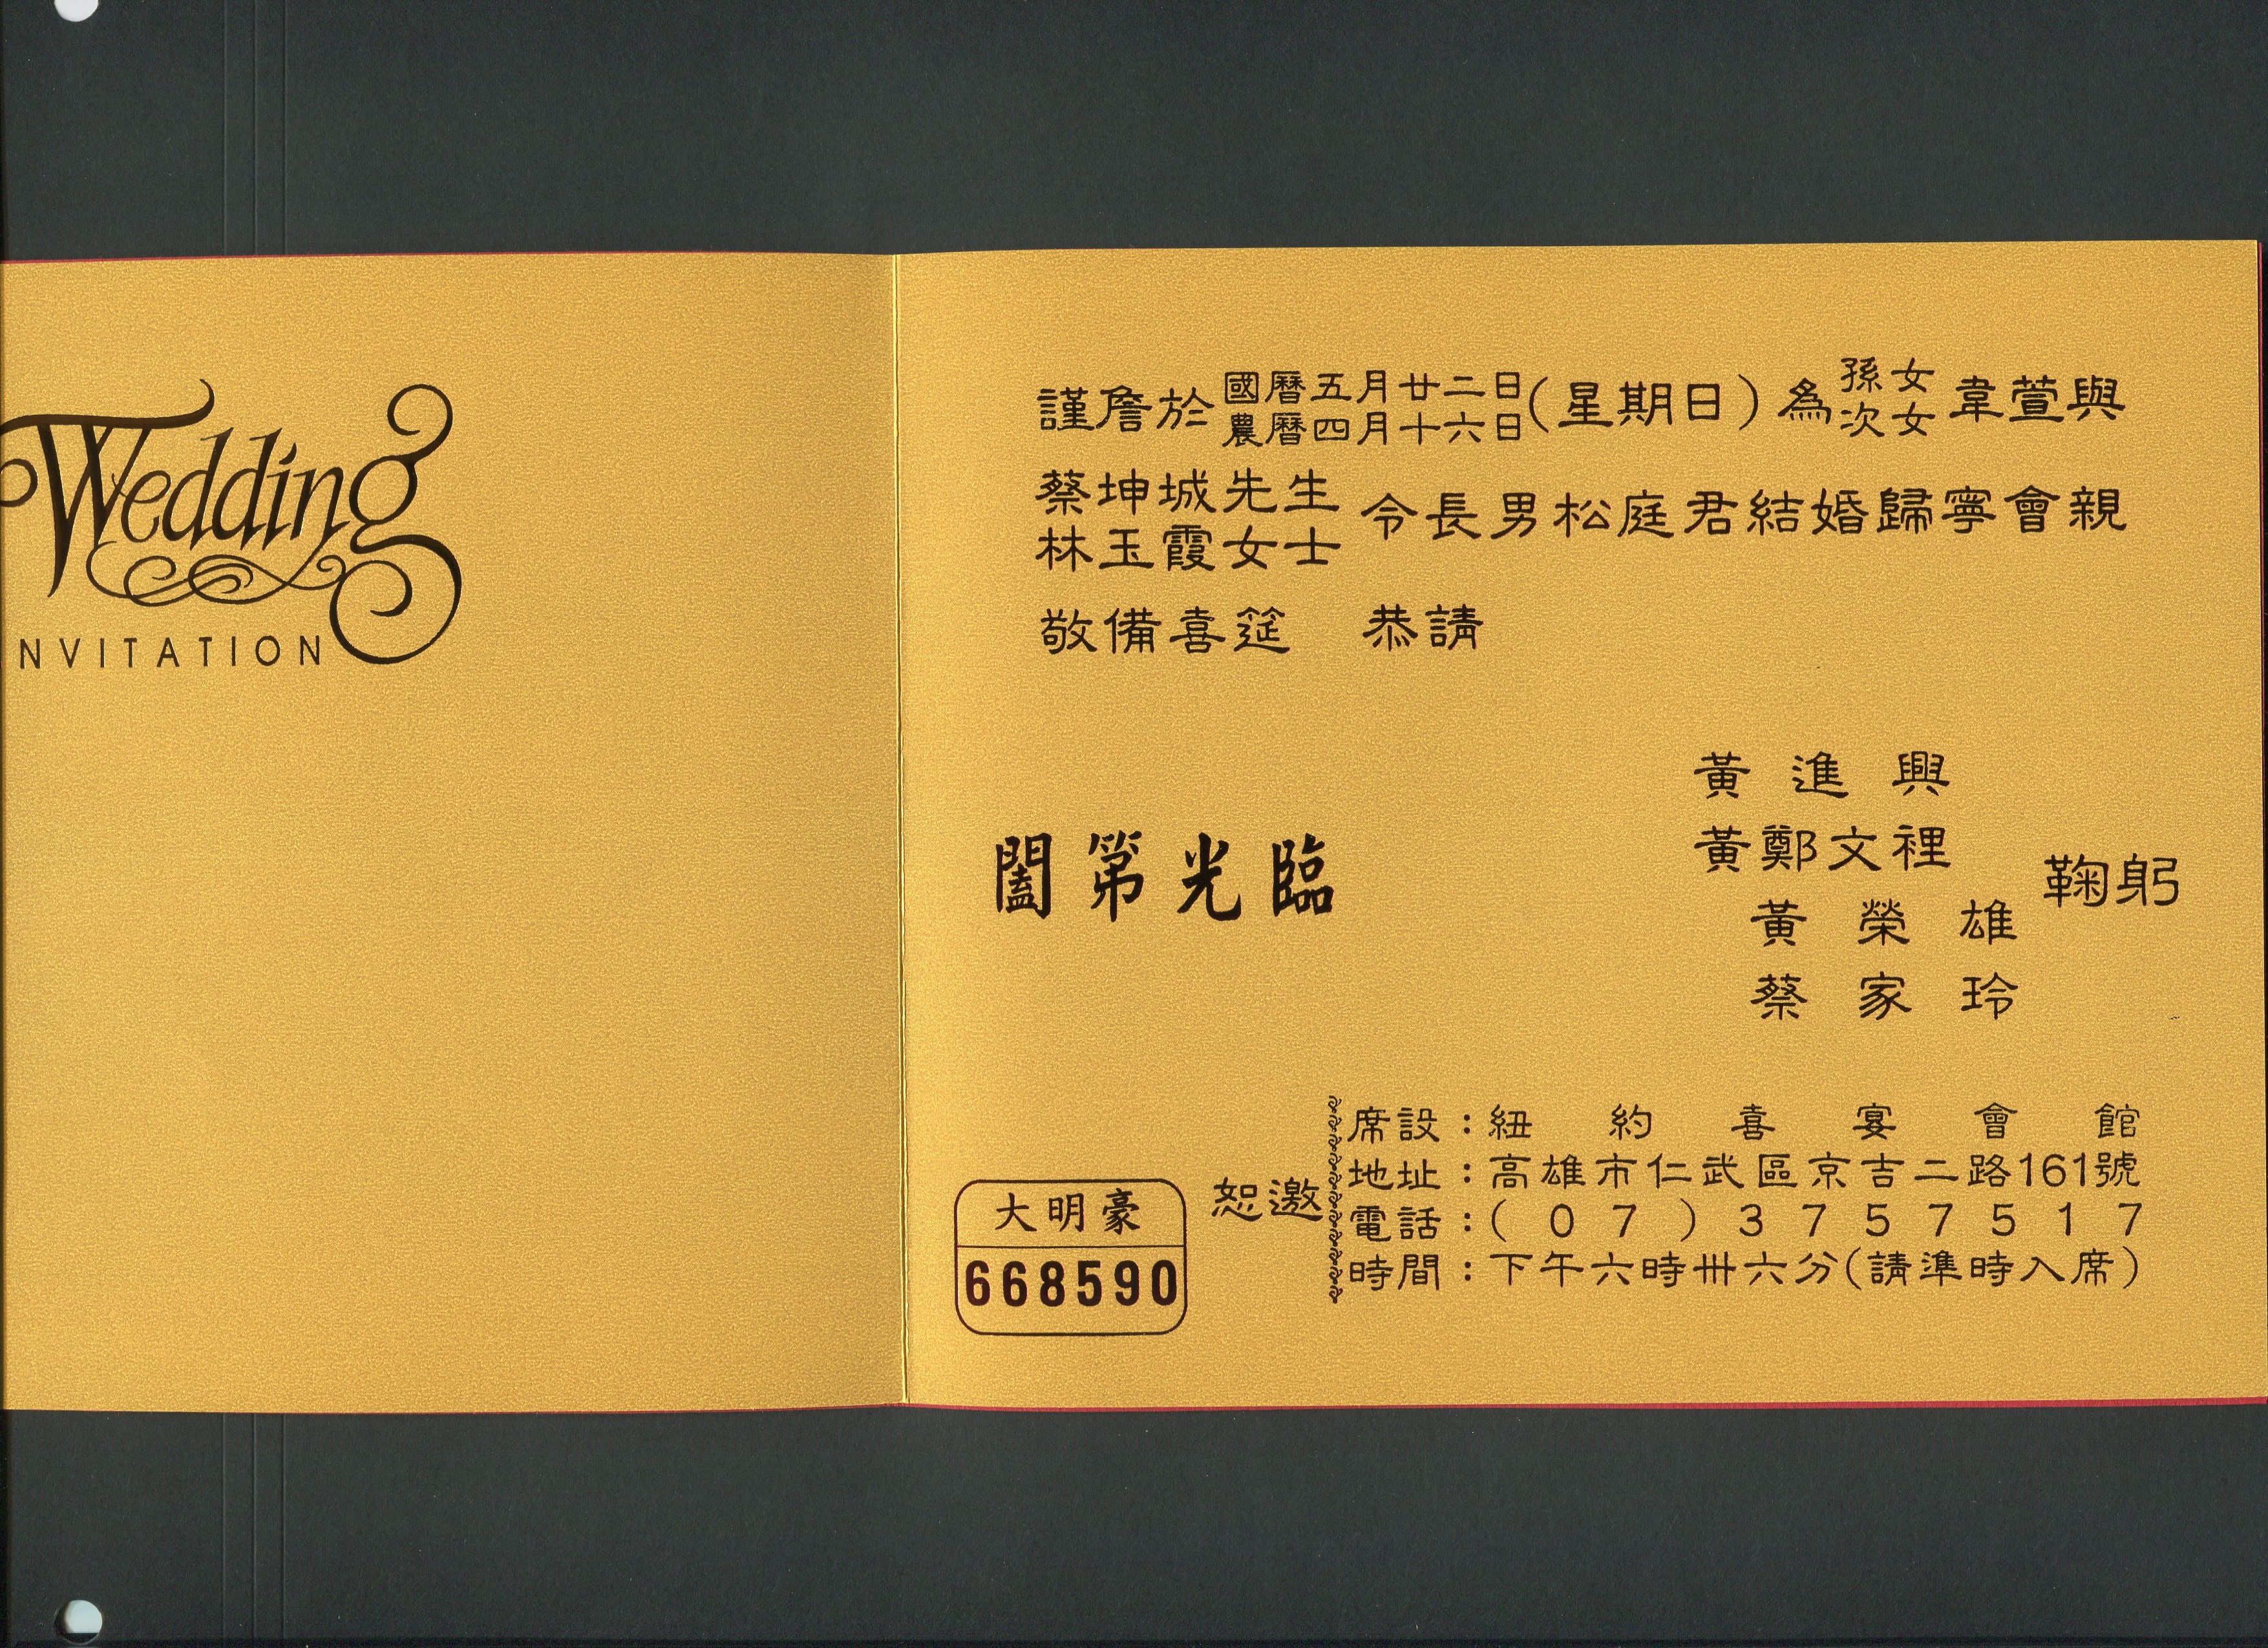 Wedding
NVITATION
謹詹於國曆五月廿二日(星期日)為孫女韋萱與
農曆四月十六日 次女
蔡坤城先生
林玉霞女士
令長男松庭君結婚歸寧會親
敬備喜筵 恭請
闔第光臨
黃進興
黃鄭文裡
黃榮雄
蔡家玲
鞠躬
恕邀
席設：紐約喜宴會館
地址：高雄市仁武區京吉二路161號
電話：(07)3757517
時間：下午六時卅六分(請準時入席)
大明豪
668590